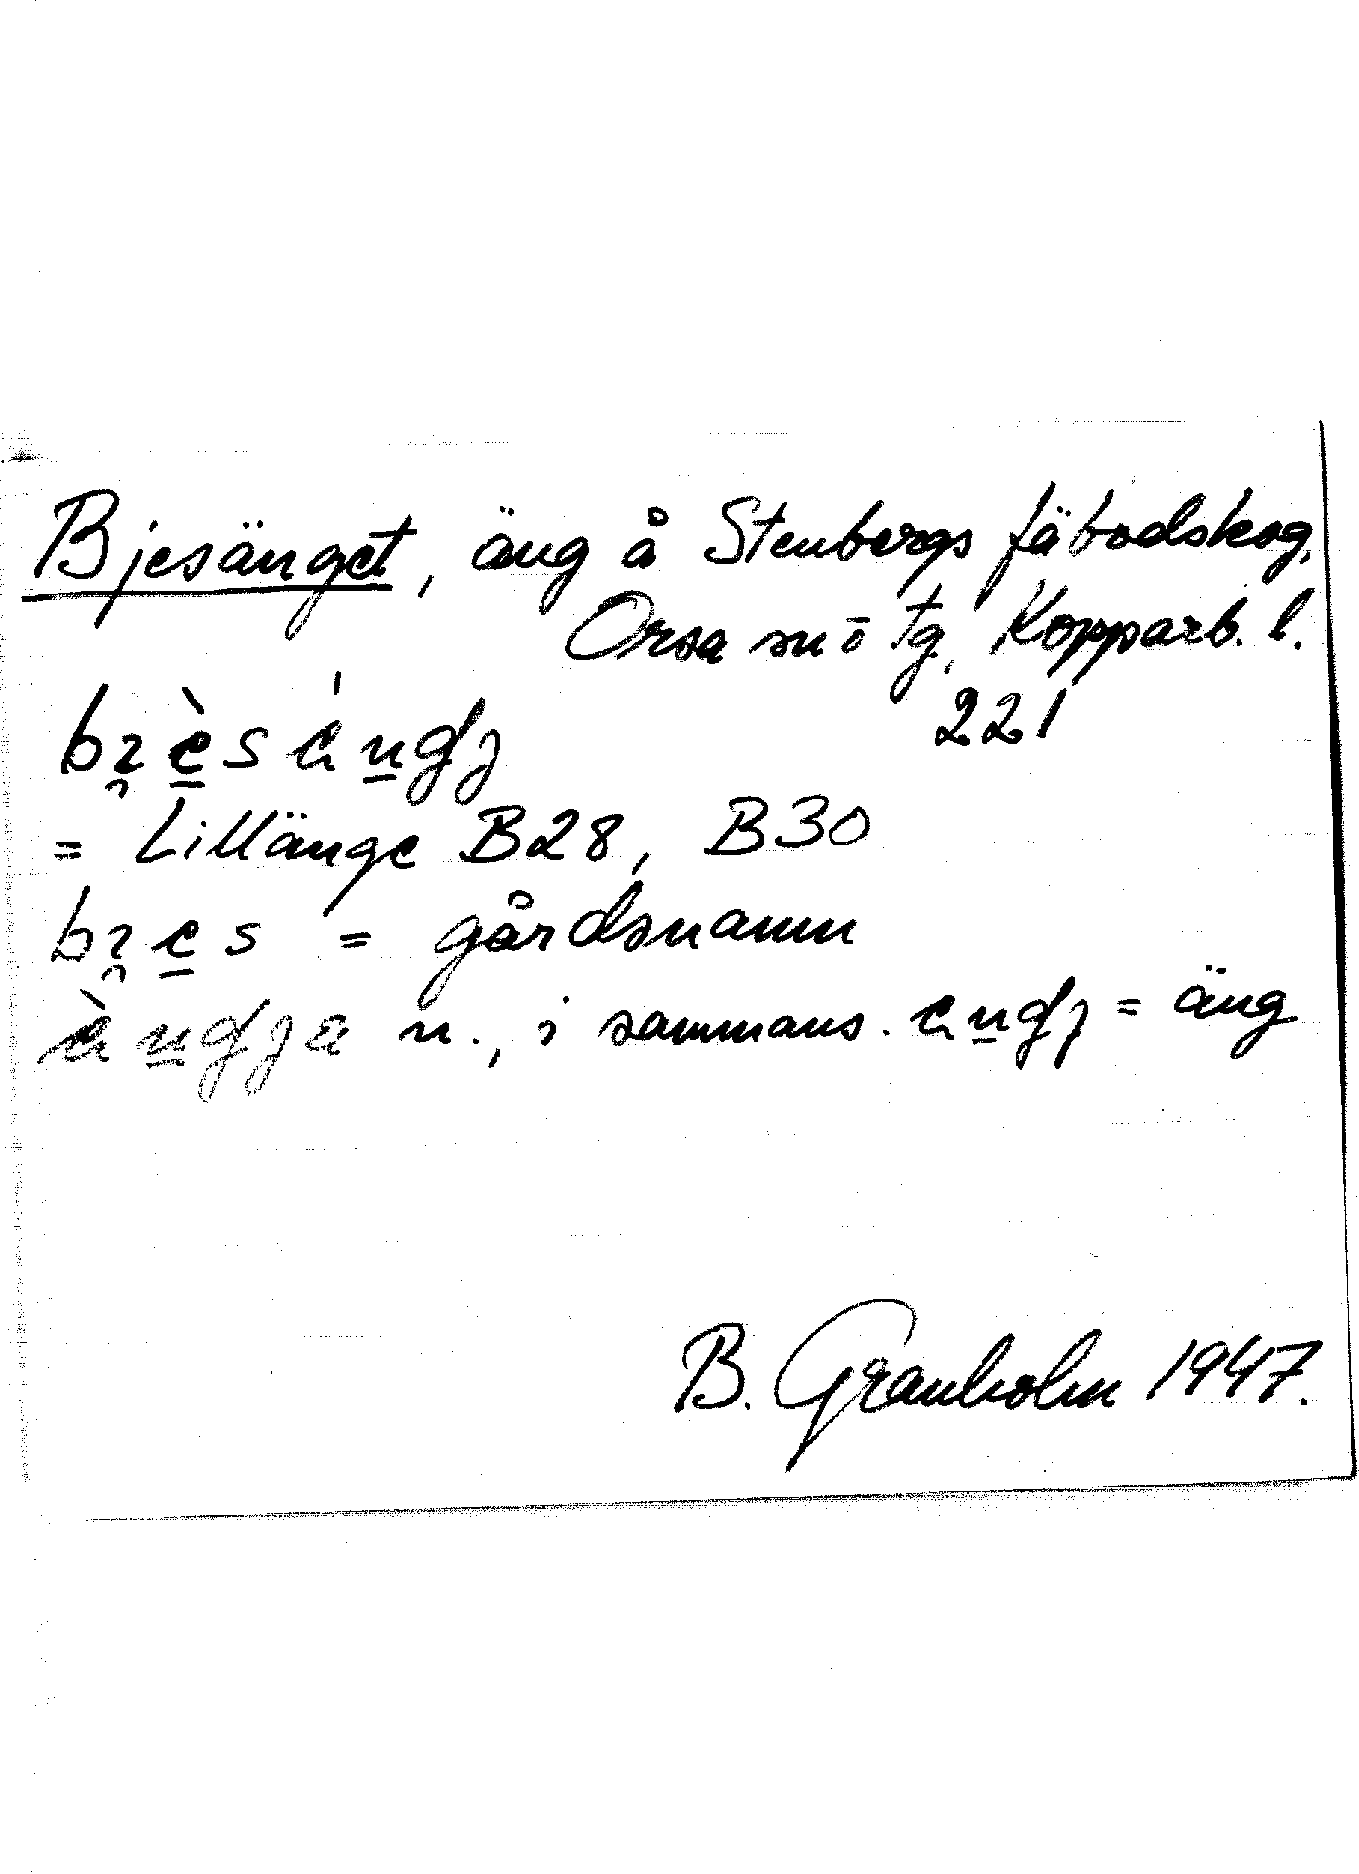 Bjesänget, äng å Stenbergs fäbodskog,
Orsa sn ō tg, Kopparb. l.
221
= Lillänge B28, B30
= gårdsnamn
n., i sammans. = äng
B. Granholm 1947.